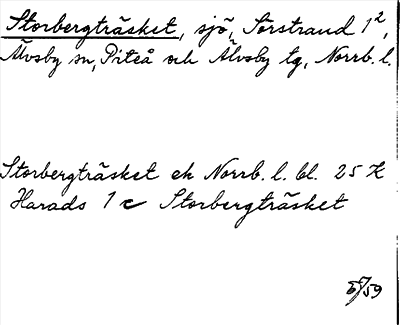 Storbergträsket, sjö, Torstrand 1²,
Älvsby sn, Piteå och Älvsby tg, Norrb. l.
Storbergträsket ek Norrb. l. bl. 25 K
Harads 1 c Storbergträsket